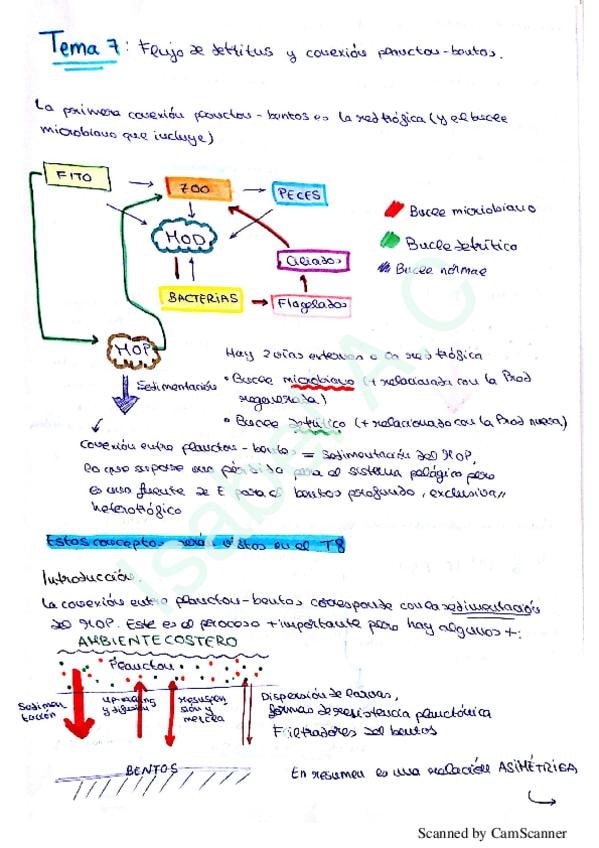 Tema 7: Flujo de detritus y conexión plancton-bentos.
La primera conexión plancton-bentos es la red trófica (y el bucle
microbiano que incluye)
FITO
ZOO
PECES
MOD
Ciliados
BACTERIAS
Flagelados
MOP
Sedimentación
Bucle microbiano
Bucle detrítico
Bucle normal
Hay 2 vías en la red trófica
• Bucle microbiano (+ relacionada con la Prod
regenerada)
• Bucle detrítico (+ relacionado con la Prod nueva)
Conexión entre plancton-bentos = sedimentación del MOP,
lo que supone una pérdida para el sistema pelágico pero
es una fuente de E para el bentos profundo, exclusiva//
heterotrófico
Estos conceptos será vistos en el T8
Introducción.
La conexión entre plancton-bentos corresponde con la sedimentación
del MOP. Este es el proceso + importante pero hay algunos +:
AMBIENTE COSTERO
Plancton
Sedimentación
upwelling y difusión
resuspensión y mezcla
Dispersión de larvas,
formas de resistencia planctónica
Filtradores del bentos
BENTOS
En resumen es una relación ASIMÉTRICA
Isabel A.C
Scanned by CamScanner